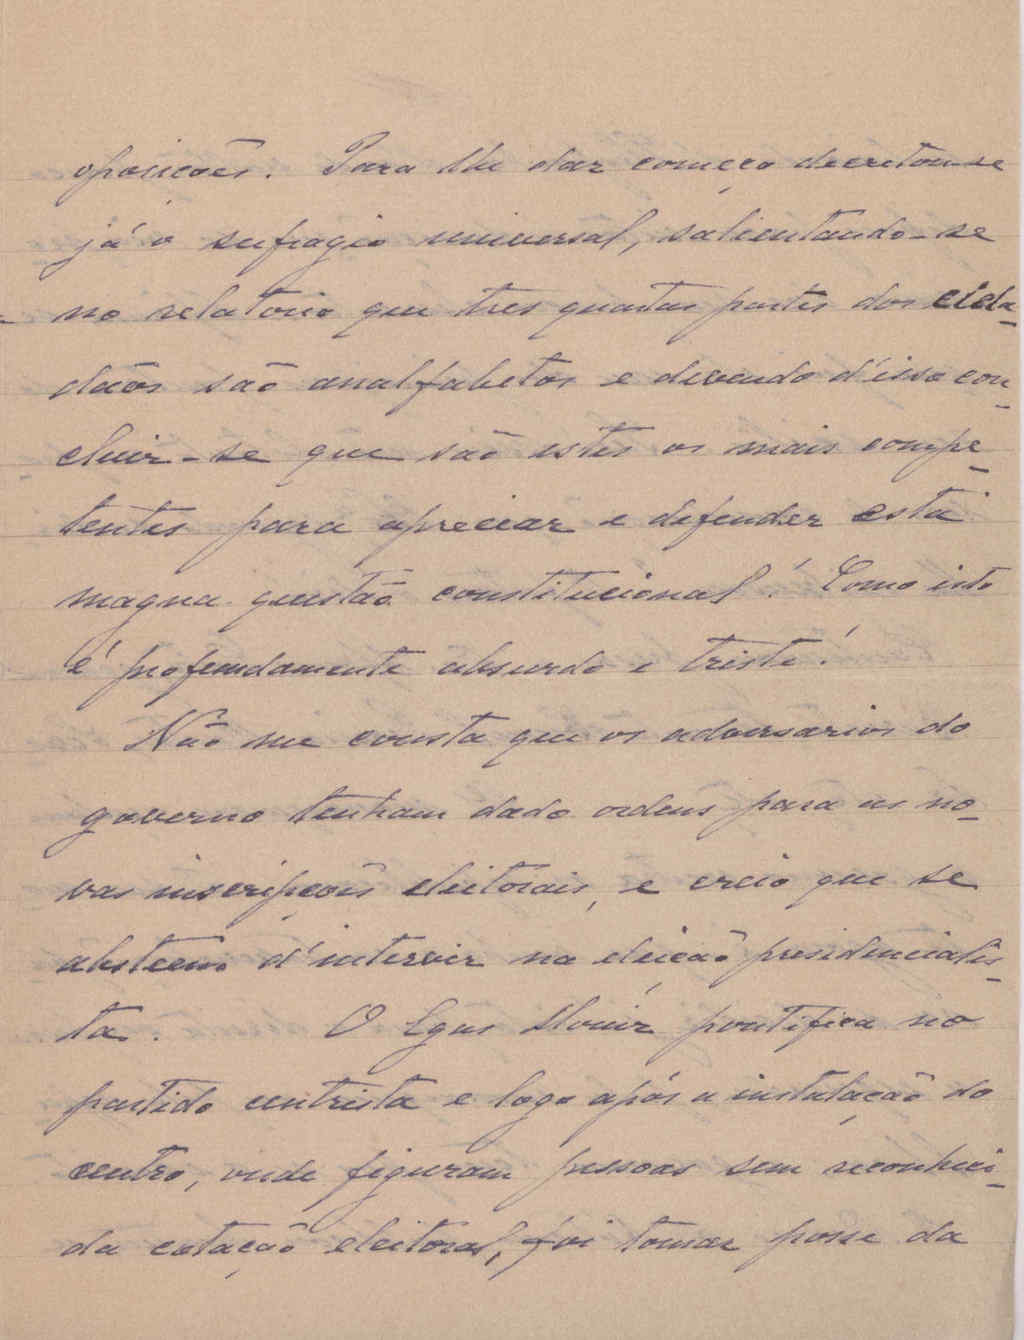 oposicões. Para lhe dar começo decretou-se
já o sufragio universal, salientando-se
no relatorio que tres quartas partes dos cida-
dãos são analfabetos e devendo d'isso con-
cluir-se que são estes os mais compe-
tentes para apreciar e defender esta
magna questão constitucional! Como isto
é profundamente absurdo e triste!
Não me consta que os adversarios do
governo tenham dado ordens para as no-
vas inscripções eleitorais, e creio que se
absteem d'intervir na eleição presidencialis-
ta. O Egas Moniz pontifica no
partido centrista e logo após a instalação do
centro, onde figuram pessoas sem reconheci-
da cotação eleitoral, foi tomar posse da